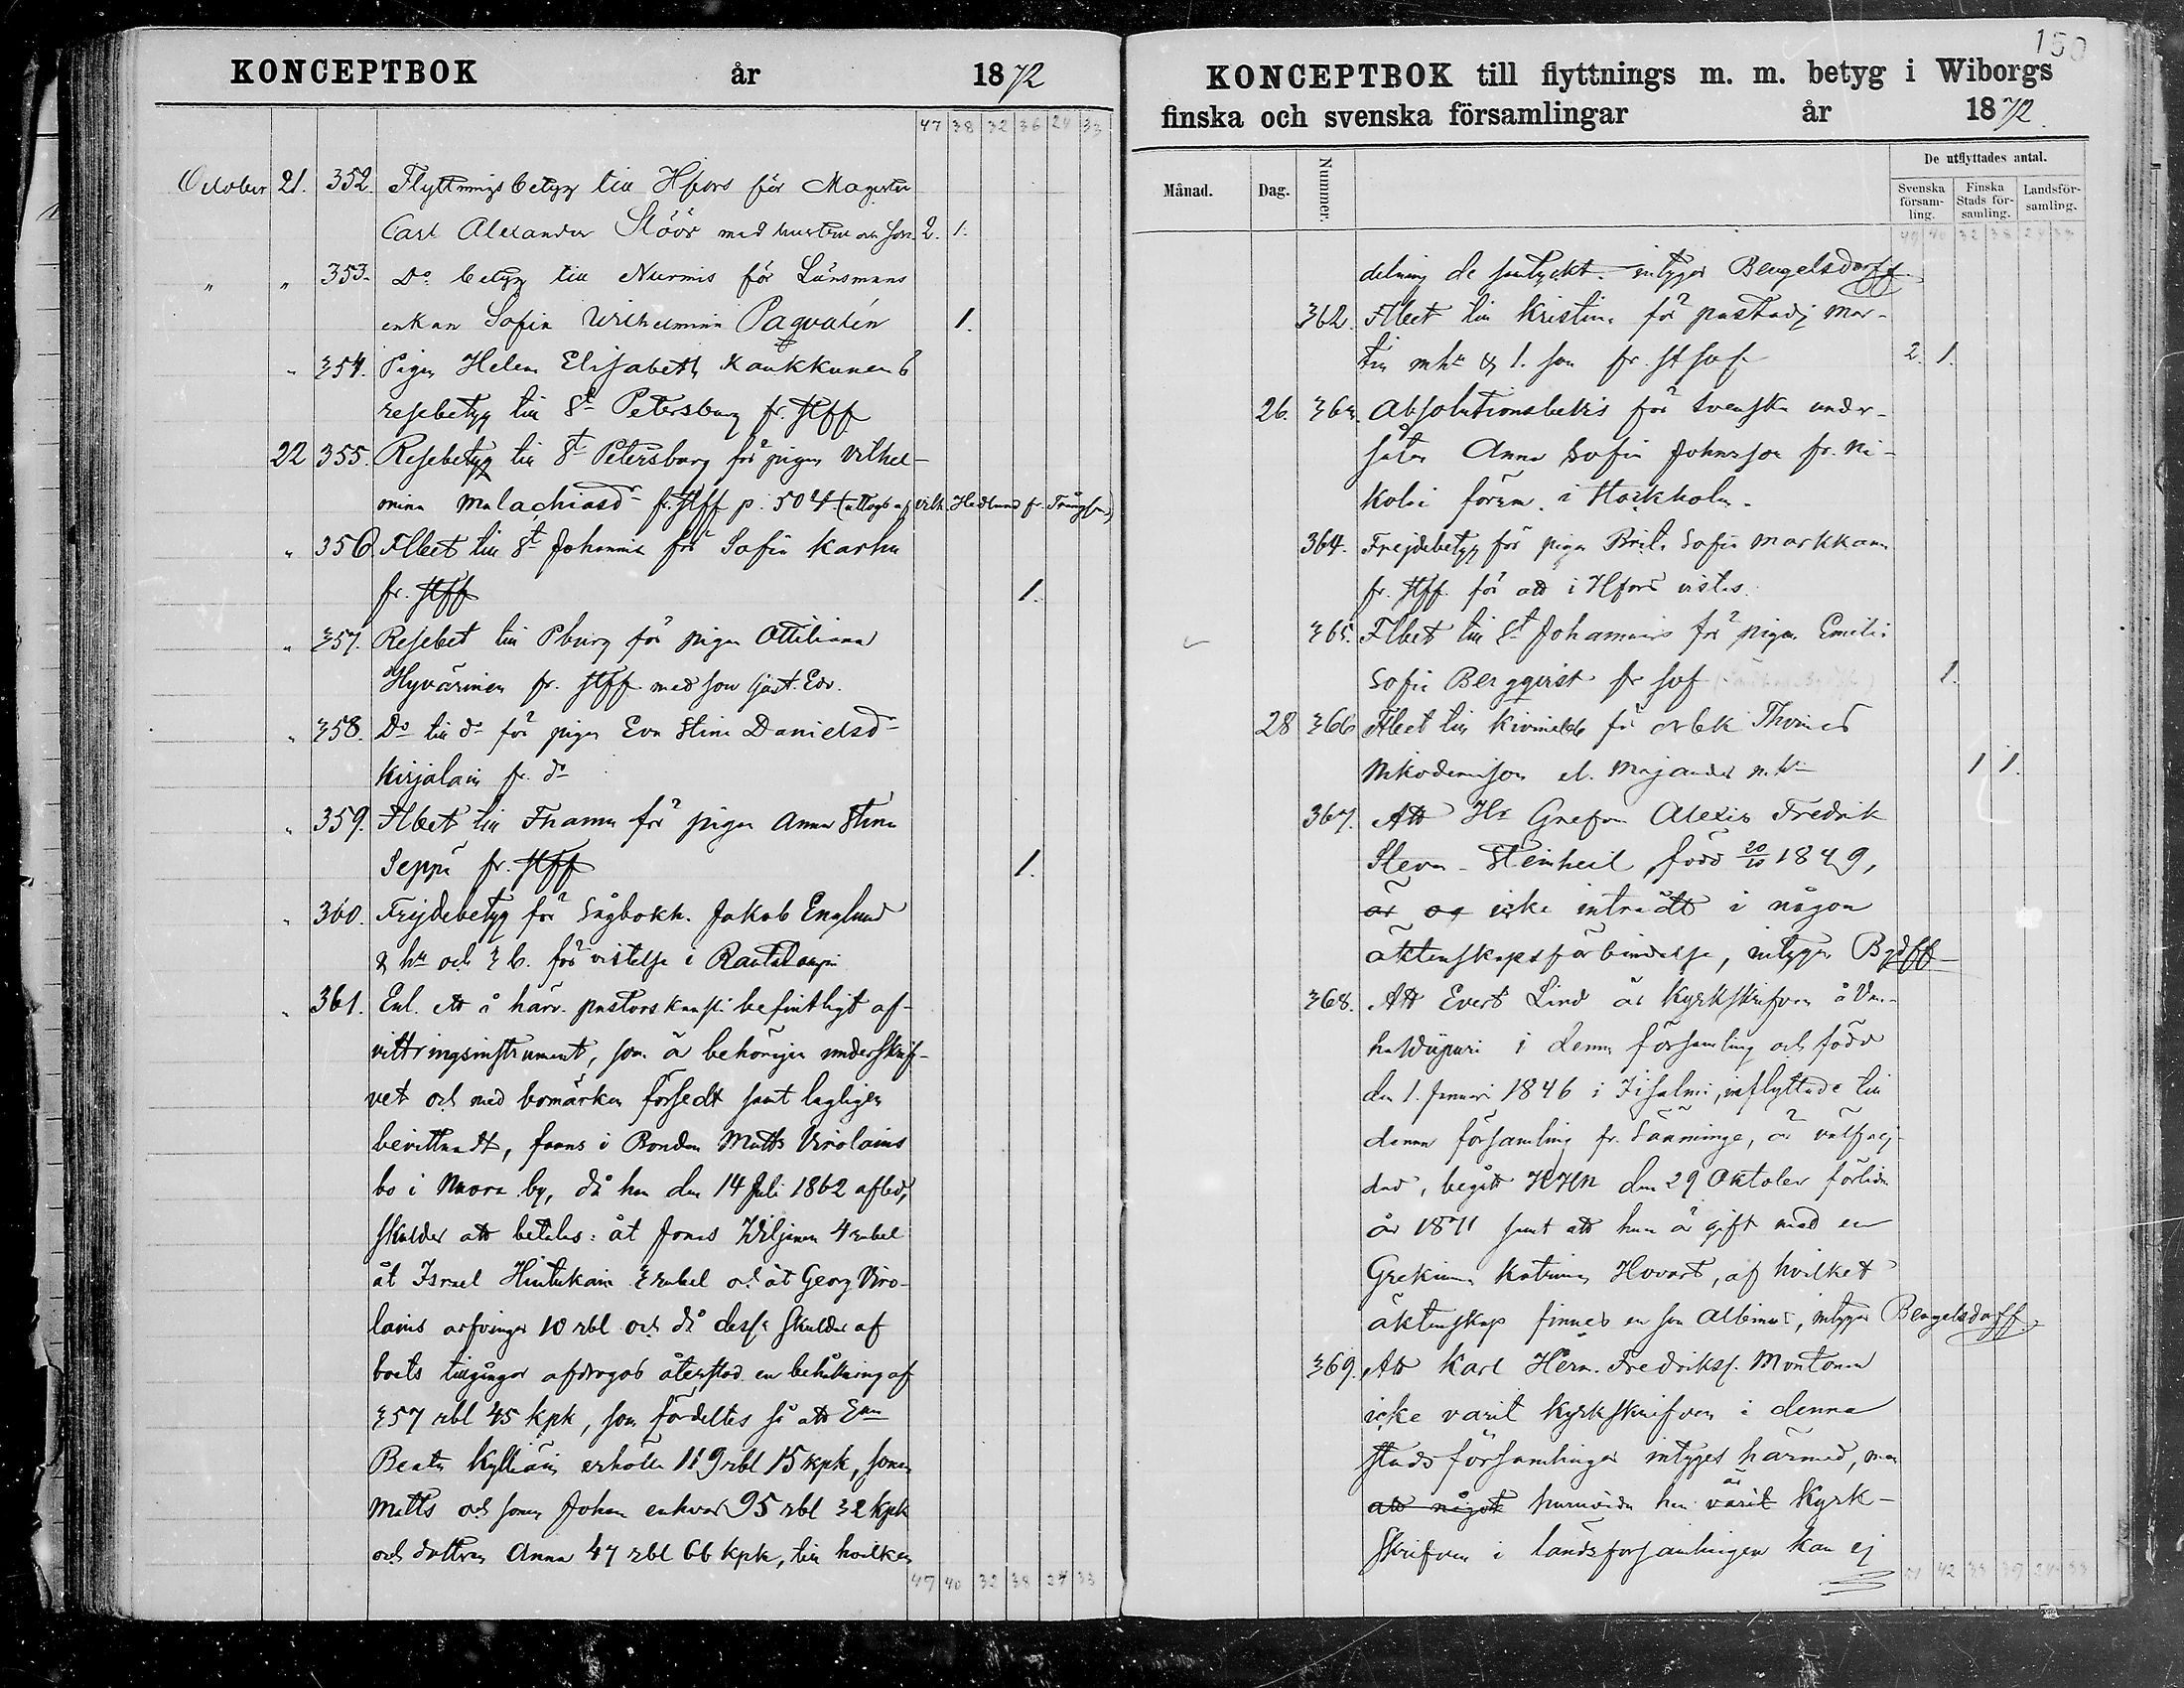 KONCEPTBOK år 1872
47 38 32 36 24 33
October 21. 352. Flyttningsbetyg till Hfors för Magister
Carl Alexander Slöör med hustru och son. 2. 1.
" " 353. Do betyg till Nurmis för Länsmans
enkan Sofia Wilhelmina Paqvalén 1.
" 354. Pigan Helena Elisabeth Kaukkunens
resebetyg till St Petersburg fr. Stff
22 355. Resebetyg till St Petersburg för pigan Vilhel-
mina Malachiasdr fr. Stff p. 504 (uttogs af Vilh. Hedlund fr.
" 356. Flbet till St Johannis för Sofia Karhu
fr. Stff 1.
" 357. Resebet till Pburg för pigan Ottiliana
Hyvärinen fr. Stff med son Gust. Edv.
" 358. Do till do för pigan Eva Stina Danielsdr
Kirjalain fr. do
" 359. Flbet till Thama för pigan Anna Stina
Seppä fr. Stff 1.
" 360. Frejdebetyg för Sågbokh. Jakob Englund
& hu och 3 b. för vistelse i Rautalampi
" 361. Enl. ett å härv. pastorskansli befintligt af-
vittringsinstrument, som är behörigen underskrif-
vet och med bomärken försedt samt lagligen
bevittnadt, fanns i Bonden Matts Virolains
bo i Nuora by, då han den 14 Juli 1862 afled,
skulder att betalas: åt Jonas Wiljanen 4 rubel
åt Israel Hintukain 3 rubel och åt Georg Viro-
lains arfvingar 10 rbl och då dessa skulder af
boets tillgångar afdrogos återstod en behållning af
357 rbl 45 kpk, som fördeltes så att Enkan
Beata Kylliäin erhöll 119 rbl 15 kpk, sonen
Matts och sonen Johan enhvar 95 rbl 32 kpk
och dottren Anna 47 rbl 66 kpk, till hvilken
47 40 32 38 24 33
150
KONCEPTBOK till flyttnings m. m. betyg i Wiborgs
finska och svenska församlingar år 1872.
Månad. Dag. Nummer. De utflyttades antal.
Svenska församling. Finska Stadsförsamling. Landsförsamling.
47 40 32 38 24 33
delning de samtyckt. intygar Bengelsdorff
362. Flbet till Kristina för pastadj Mar-
tin mhu & 1. son fr. St sv f. 2. 1.
26. 363. Absolutionsbevis för svenska under-
såten Anna Sofia Johnsson fr. Ni-
kolai förs. i Stockholm.
364. Frejdebetyg för pigan Brita Sofia Markkanen
fr. Stff. för att i Hfors vistas.
365. Flbet till St Johannis för pigan Emilia
Sofia Bergqvist fr sv f 1.
28 366 Flbet till Kivinebb för arbk Thomas
Nikodemsson el. Majander m. hu 1 1.
367. Att Hr Grefven Alexis Fredrik
Steven-Steinheil, född 20/10 1849,
är ej icke inträdt i någon
äktenskapsförbindelse, intygar Bgdff
368. Att Evert Lind är kyrkskrifven å Van-
ha Wiipuri i denna församling och född
den 1. Januari 1846 i Iisalmi, inflyttade till
denna församling fr. Sääminge, är välfrej-
dad, begått HHN den 29 Oktober förlidne
år 1871 samt att han är gift med en
Grekinna Katarina Hovart, af hvilket
äktenskap finnes en son Albinus, intygar Bengelsdorff.
369. Att Karl Herm. Fredrikss. Montonen
icke varit kyrkskrifven i denna
stadsförsamlingen intygas härmed, men
att något huruvida han är varit kyrk-
skrifven i landsförsamlingen kan ej
51 42 33 39 24 33